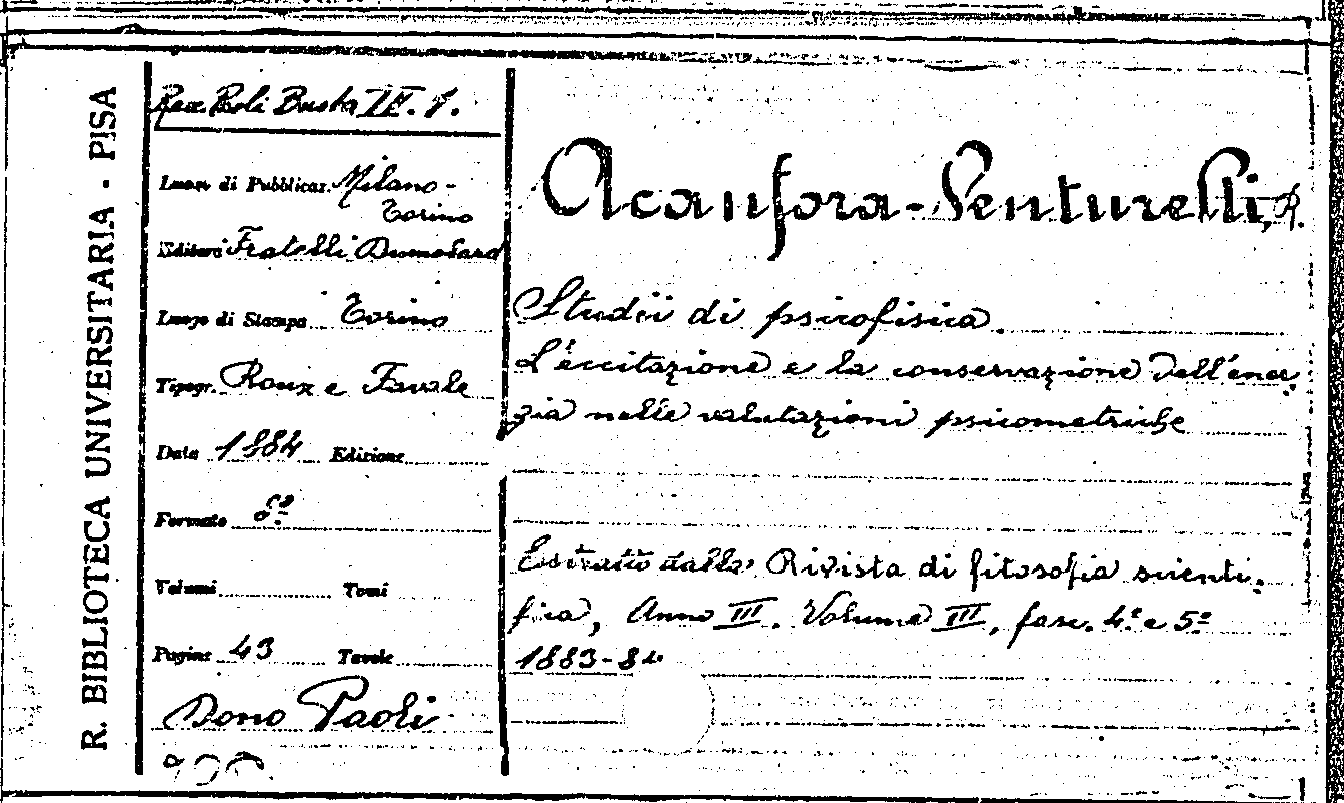 R. BIBLIOTECA UNIVERSITARIA - PISA
Paoli Busta IV. 8.
Luogo di Pubblicaz. Milano-
Torino
Editore Fratelli Dumolard
Luogo di Stampa Torino
Tipogr. Roux e Favale
Data 1884 Edizione
Formato 8º
Volumi Tomi
Pagine 43 Tavole
Dono Paoli
Acanfora-Venturelli, R.
Studii di psicofisica.
L'eccitazione e la conservazione dell'ener-
gia nelle valutazioni psicometriche
Estratto dalla Rivista di filosofia scienti-
fica, Anno III. Volume III, fasc. 4º e 5º
1883-84